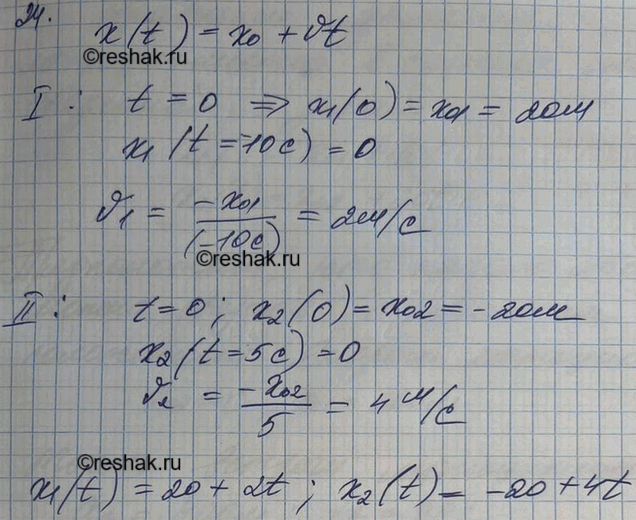 24.
x(t) = x₀ + ϑt
©reshak.ru
I: t = 0 ⇒ x₁(0) = x₀₁ = 20м
x₁(t = -10c) = 0
ϑ₁ = -x₀₁/(-10c) = 2м/с
©reshak.ru
II: t = 0; x₂(0) = x₀₂ = -20м
x₂(t = 5c) = 0
ϑ₂ = -x₀₂/5 = 4 м/с
©reshak.ru
x₁(t) = 20 + 2t; x₂(t) = -20 + 4t